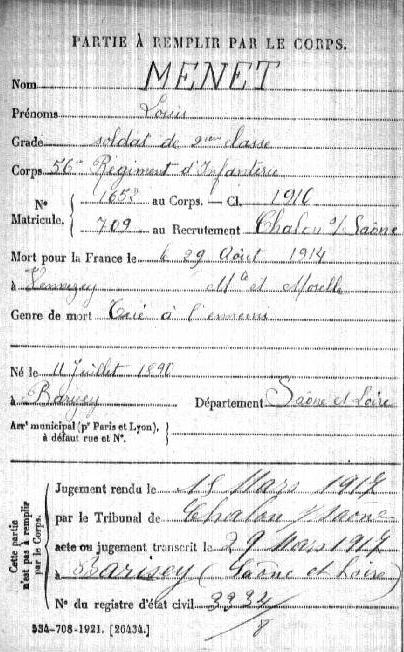 PARTIE À REMPLIR PAR LE CORPS.
Nom MENET
Prénoms Louis
Grade soldat de 2ième classe
Corps 56e Régiment d'Infanterie
N° Matricule. { au Corps. — Cl. 1910
709 au Recrutement Chalon s/ Saône
Mort pour la France le le 29 Août 1914
à Vennezey Mthe et Moselle
Genre de mort Tué à l'ennemi
Né le 11 Juillet 1890
à Barizey Département Saône et Loire
Arrt municipal (pr Paris et Lyon), à défaut rue et N°. {
Cette partie n'est pas à remplir par le Corps.
Jugement rendu le 15 Mars 1917
par le Tribunal de Chalon s/ Saône
acte ou jugement transcrit le 29 Mars 1917
à Barisey (Saône et Loire)
N° du registre d'état civil
534-708-1921. [26434.]